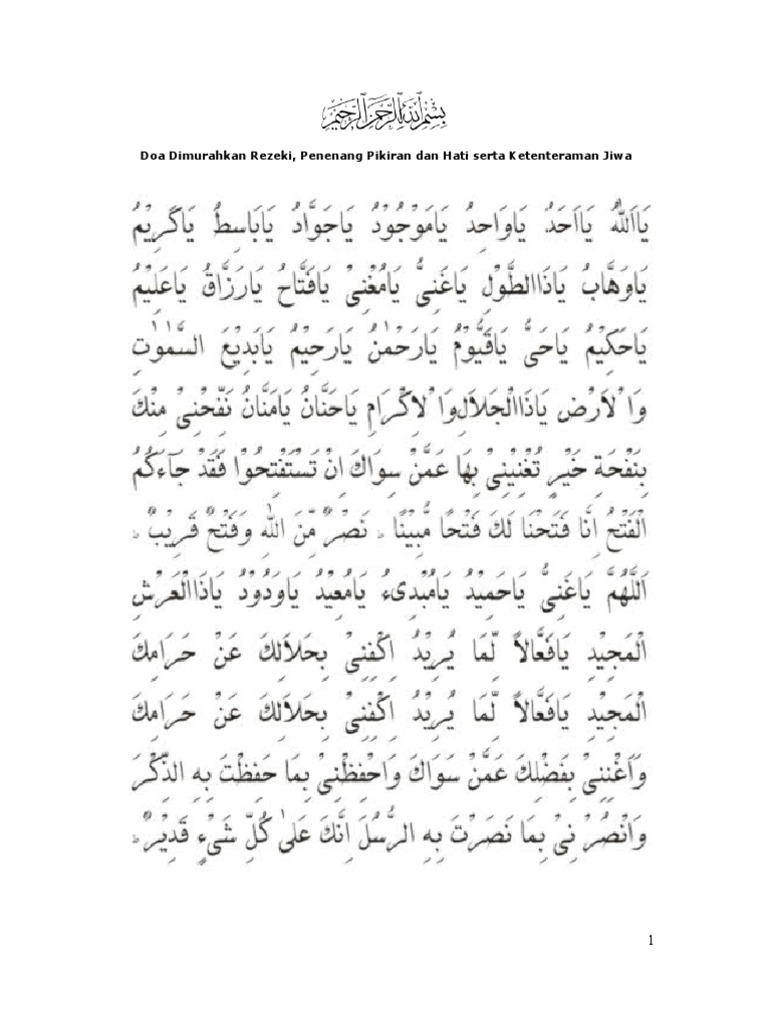 بِسْمِ اللهِ الرَّحْمٰنِ الرَّحِيْمِ
Doa Dimurahkan Rezeki, Penenang Pikiran dan Hati serta Ketenteraman Jiwa
يَااَللهُ يَااَحَدُ يَاوَاحِدُ يَامَوْجُوْدُ يَاجَوَّادُ يَابَاسِطُ يَاكَرِيْمُ
يَاوَهَّابُ يَاذَاالطَّوْلِ يَاغَنِىُّ يَامُغْنِىْ يَافَتَّاحُ يَارَزَّاقُ يَاعَلِيْمُ
يَاحَكِيْمُ يَاحَىُّ يَاقَيُّوْمُ يَارَحْمٰنُ يَارَحِيْمُ يَابَدِيْعَ السَّمٰوٰتِ
وَاْلاَرْضِ يَاذَاالْجَلاَلِ وَاْلاِكْرَامِ يَاحَنَّانُ يَامَنَّانُ نَفِّحْنِىْ مِنْكَ
بِنَفْحَةِ خَيْرٍ تُغْنِيْنِىْ بِهَا عَمَّنْ سِوَاكَ اِنْ تَسْتَفْتِحُوْا فَقَدْ جَآءَكُمُ
الْفَتْحُ اِنَّا فَتَحْنَا لَكَ فَتْحًا مُّبِيْنًا ۰ نَصْرٌ مِّنَ اللهِ وَفَتْحٌ قَرِيْبٌ ۰
اَللّٰهُمَّ يَاغَنِىُّ يَاحَمِيْدُ يَامُبْدِىءُ يَامُعِيْدُ يَاوَدُوْدُ يَاذَاالْعَرْشِ
الْمَجِيْدِ يَافَعَّالاً لِّمَا يُرِيْدُ اِكْفِنِىْ بِحَلاَلِكَ عَنْ حَرَامِكَ
الْمَجِيْدِ يَافَعَّالاً لِّمَا يُرِيْدُ اِكْفِنِىْ بِحَلاَلِكَ عَنْ حَرَامِكَ
وَاَغْنِنِىْ بِفَضْلِكَ عَمَّنْ سَوَاكَ وَاحْفِظْنِىْ بِمَا حَفِظْتَ بِهِ الذِّكْرَ
وَانْصُرْنِىْ بِمَا نَصَرْتَ بِهِ الرُّسُلَ اِنَّكَ عَلىٰ كُلِّ شَىْءٍ قَدِيْرٌ ۰
1